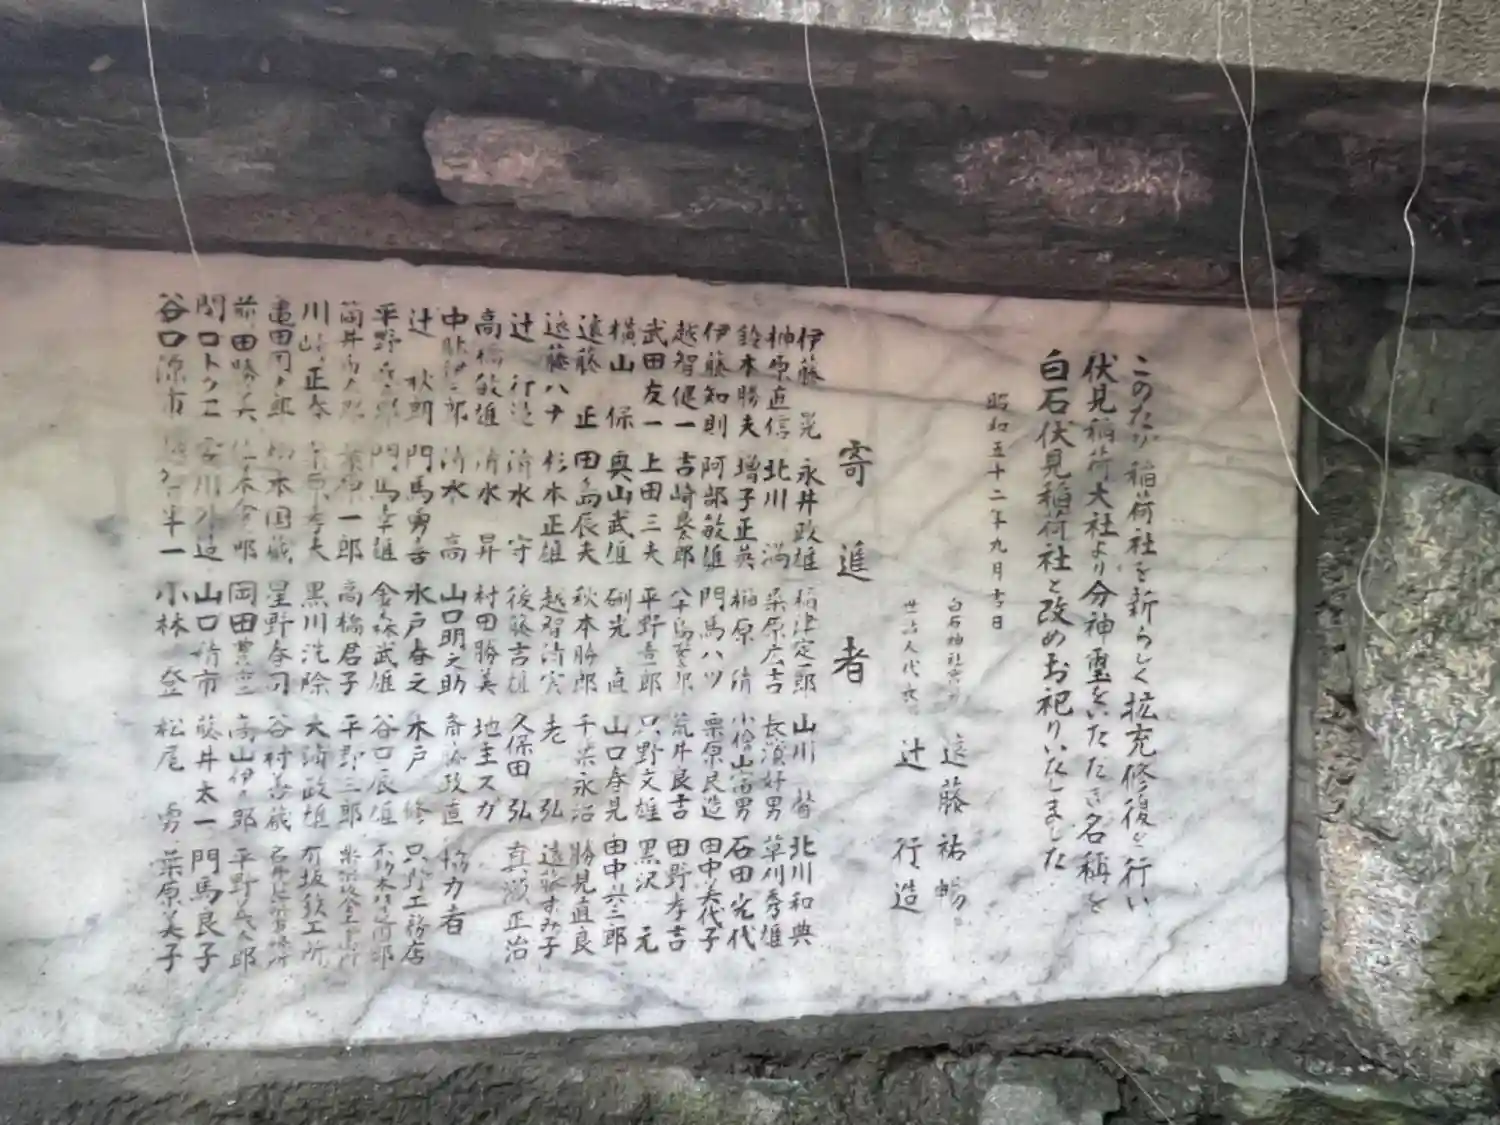 このたび稲荷社を新らしく拡充修復を行い
伏見稲荷大社より分神璽をいただき名稱を
白石伏見稲荷社と改めお祀りいたしました
昭和五十二年九月吉日
白石神社宮司 遠藤祐暢
世話人代表 辻 行造
寄進者
伊藤 晃 永井政雄 稲津定一郎 山川 督 北川和典
榊原直信 北川 満 桑原広吉 長濱好男 草刈秀雄
鈴木勝夫 増子正英 稲原 清 小檜山富男 石田光代
伊藤知則 阿部敏雄 門馬ハツ 栗原民造 田中美代子
越智健一 吉崎粂郎 荒井良吉 田野孝吉
武田友一 上田三夫 平野吉郎 只野文雄 黒沢 元
横山 保 奥山武雄 硎光 直 山口春見 田中六三郎
遠藤 正 田島辰夫 秋本勝郎 千葉永治 勝見直良
遠藤ハナ 杉本正雄 越智清実 老 弘 遠藤すみ子
辻 行造 清水 守 後藤吉雄 久保田 弘 真瀬正治
高橋敏雄 清水 昇 村田勝美 地主スガ
中 郎 清水 高 山口明之助 斉藤政直 協力者
辻 秋朗 門馬勇吉 水戸春之 水戸 修 只野工務店
平野 門馬幸雄 金森武雄 谷口辰雄
筒井 一郎 高橋君子 平野三郎
川崎正春 黒川洗除 大浦政雄 有坂鉄工所
亀田 松本国蔵 星野春司 谷村善蔵
前田勝美 岡田 高山伊 郎 平野 郎
関口トクエ 山口清市 藤井太一 門馬良子
谷口源市 一 小林 登 松尾 勇 葉原美子